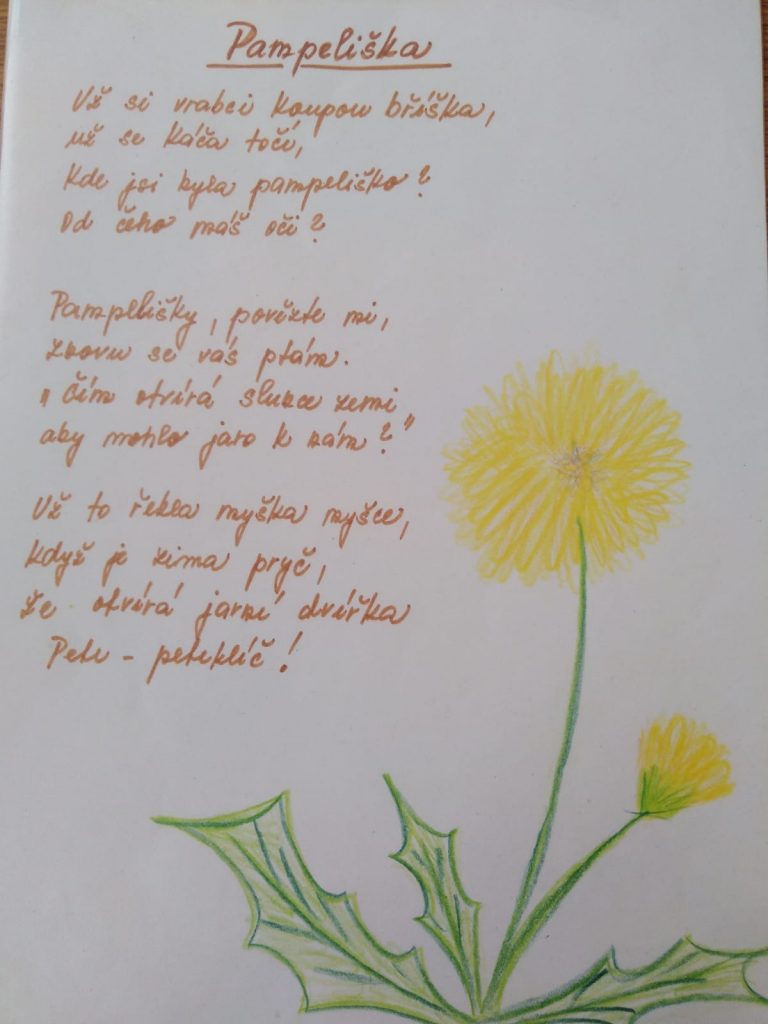 Pampeliška
Už si vrabci koupou bříška,
už se káča točí,
Kde jsi byla pampeliško?
Od čeho máš oči?
Pampelišky, povězte mi,
znovu se vás ptám.
"Čím otvírá slunce zemi
aby mohlo jaro k nám?"
Už to řekla myška myšce,
když je zima pryč,
že otvírá jarní dvířka
Petr - petrklíč!